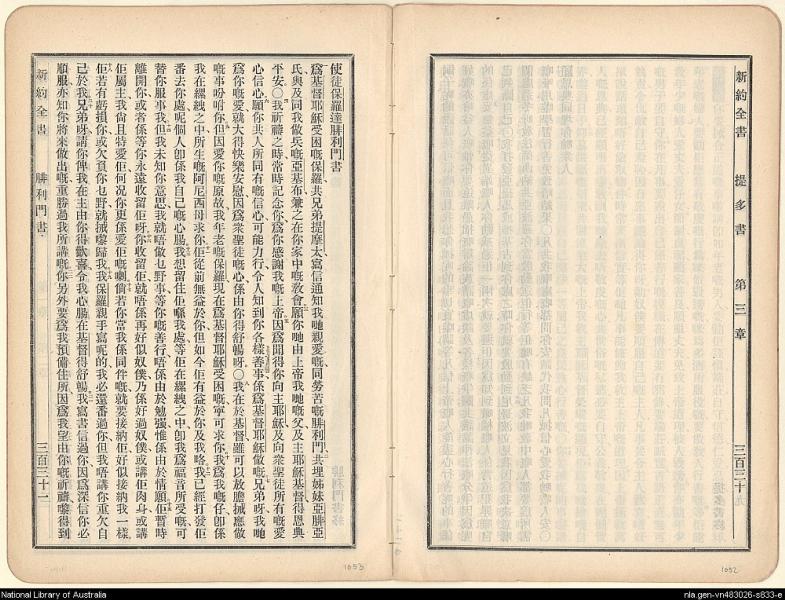 新約全書 提多書 第三章 三百三十
1052
使徒保羅達腓利門書
爲基督耶穌受困嘅保羅共兄弟提摩太寫信通知我哋親愛嘅同勞苦嘅腓利門共埋姊妹亞腓亞
氏與及同我做兵嘅亞基布兼之在你家中嘅敎會願你哋由上帝我哋嘅父及主耶穌基督得恩典
平安○我祈禱之時常時記念你爲你感謝我嘅上帝因爲聞得你向主耶穌及向衆聖徒所有嘅愛
心信心願你共人所同有嘅信心可能力行令人知到你各樣善事係爲基督耶穌做嘅兄弟呀我哋
爲你嘅愛就大得快樂安慰因爲衆聖徒嘅心係由你得舒暢呀○我在於基督雖可以放膽搣應做
嘅事吩咐你但因愛你嘅原故我年老嘅保羅現在爲基督耶穌受困嘅寧可求你我爲我嘅仔卽係
我在縲絏之中所生嘅阿尼西母求你佢從前無益於你但如今佢有益於你及我咯我已經打發佢
番去你處呢個人卽係我自己嘅心腸我想留住佢喺我處等佢在縲絏之中卽我爲福音所受嘅可
替你服事我但我未知你意思我就唔做乜野事等你嘅善行唔係由於勉强惟係由於情願佢暫時
離開你或者係等你永遠收留佢呀你收留佢就唔係再好似奴僕乃係好過奴僕或講佢肉身或講
佢屬主我尙且特愛佢何况你更係愛佢嘅喇倘若你當我係同件嘅就要接納佢好似接納我一樣
佢若有虧損你或欠負你乜野就搣嚟歸我我保羅親手寫呢的我必還番過你但我唔講你重欠自
己於我兄弟呀請你俾我在主由你得歡喜令我心腸在基督得舒暢我寫書信過你因爲深信你必
順服亦知你將來做出嘅重勝過我所講嘅你另外要爲我預備住所因爲我望由你嘅祈禱嚟得到
新約全書 腓利門書 三百三十一
1053
National Library of Australia
nla.gen-vn483026-s833-e